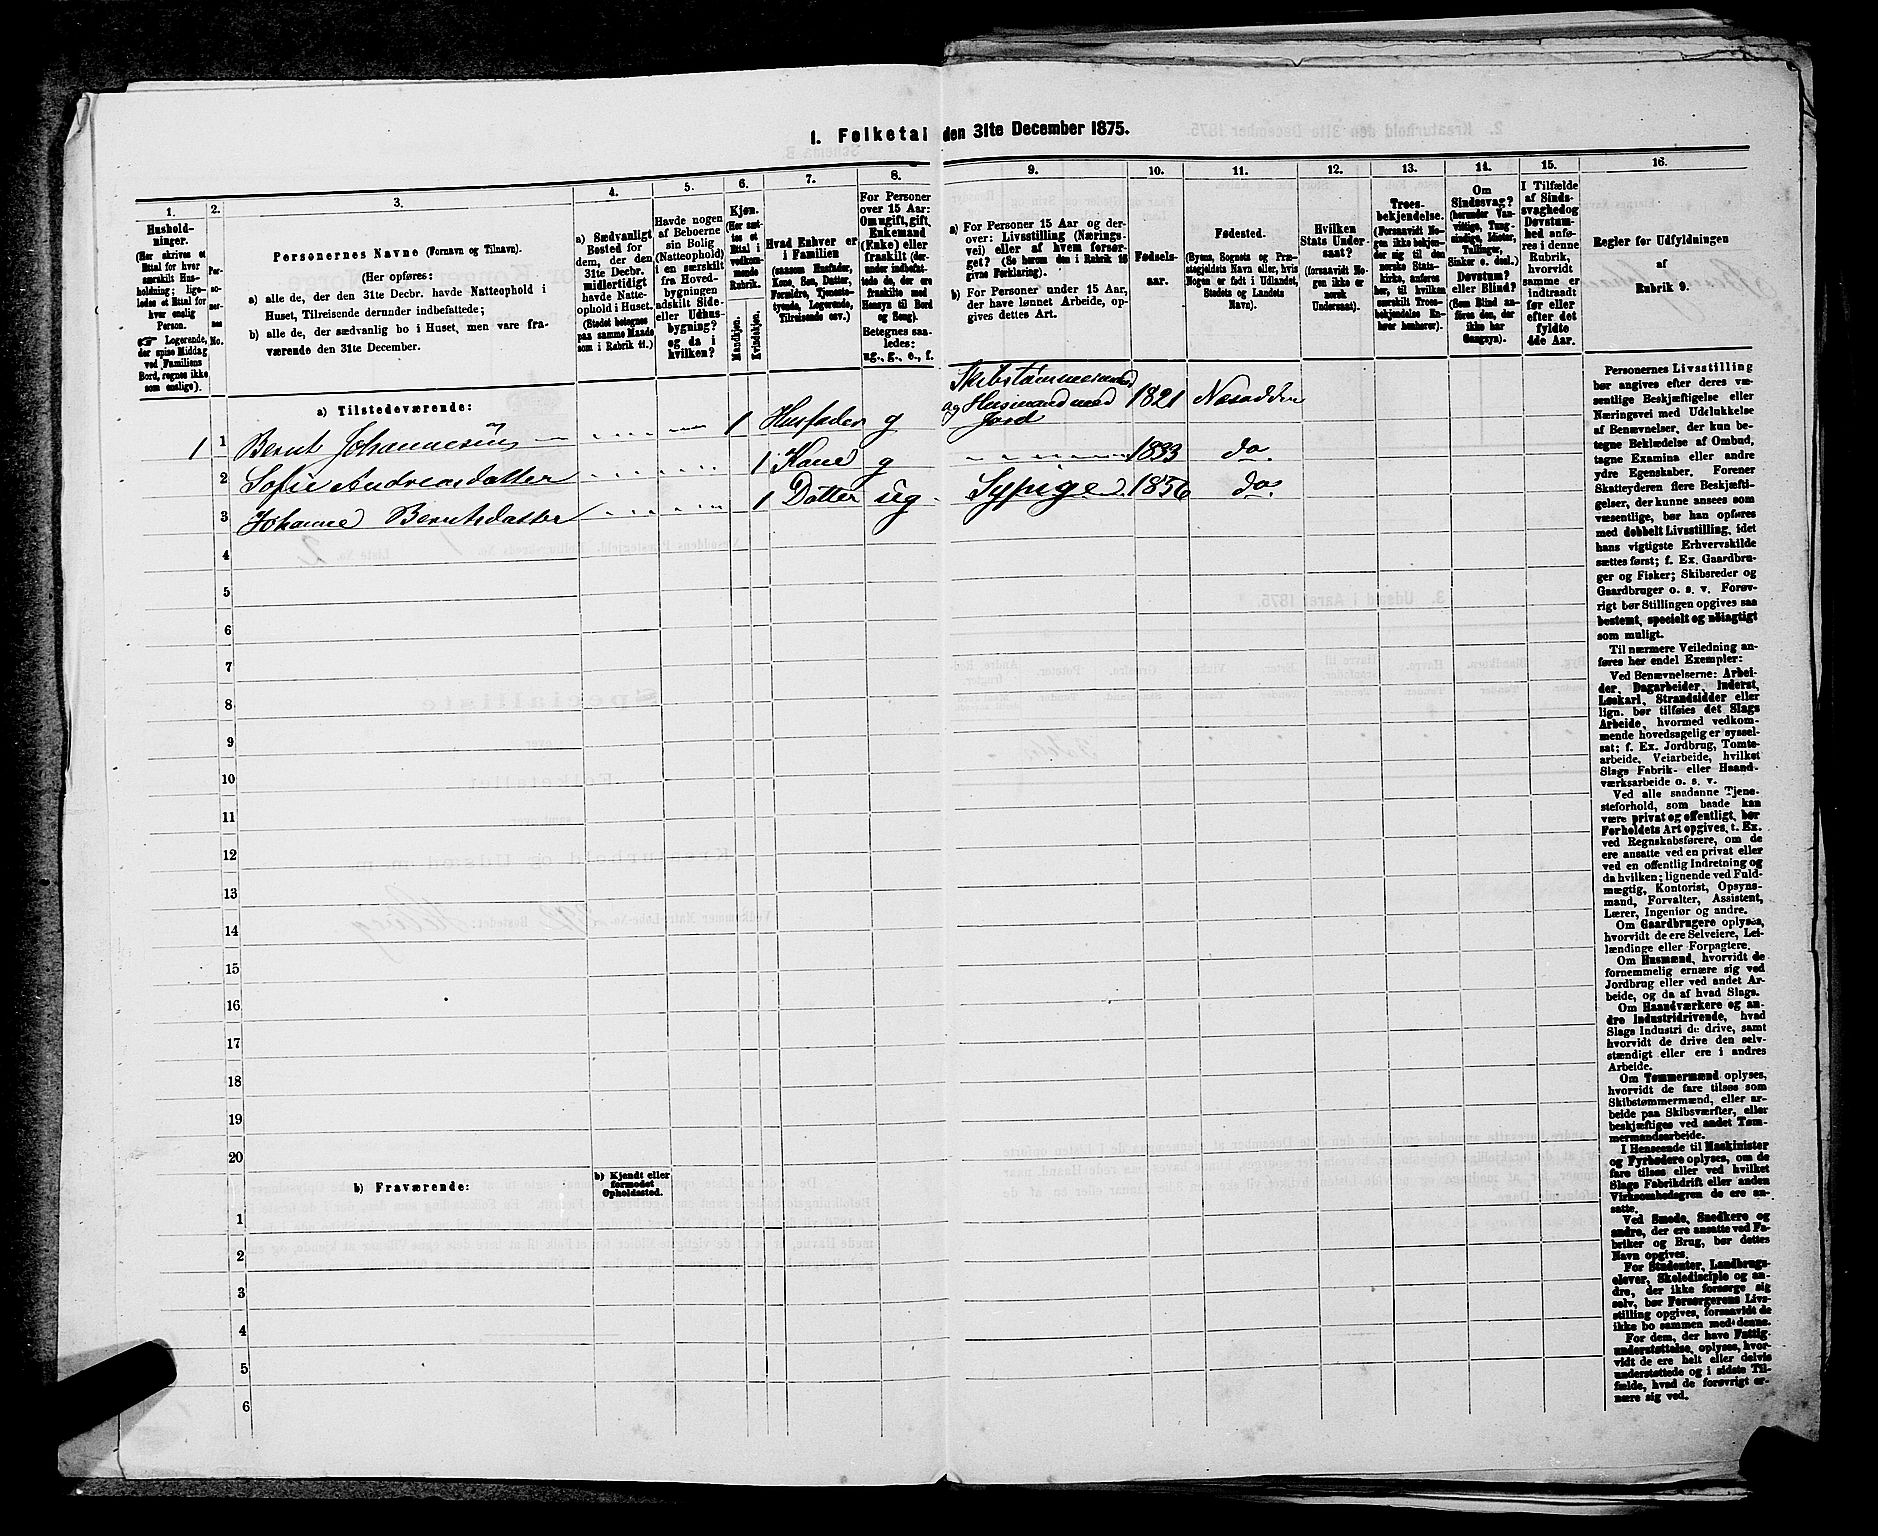 1. Folketal den 31te December 1875.
1.
Hushold-
ninger.
(Her skrives et
Ettal for hver
særskilt Hus-
holdning; lige-
ledes et Ettal for
hver enslig
Person.
Logerende,
der spise Middag
ved Familiens
Bord, regnes ikke
som enslige).
2.
Per-
so-
ner-
nes
No.
3.
Personernes Navne (Fornavn og Tilnavn).
(Her opføres:
a) alle de, der den 31te Decbr. havde Natteophold i
Huset, Tilreisende derunder indbefattede;
b) alle de, der sædvanlig bo i Huset, men vare fra-
værende den 31te December.
4.
a) Sædvanligt
Bosted for
dem, der den
31te Decbr.
midlertidigt
havde Natte-
ophold i Huset.
(Stedet betegnes
paa samme Maade
som i Rubrik 11.)
5.
Havde nogen
af Beboerne
sin Bolig
(Natteophold)
i en særskilt
fra Hoved-
bygningen
adskilt Side-
eller Udhus-
bygning?
og da i
hvilken?
6.
Kjøn.
(Her sæt-
tes et
Ettal i
vedkom-
mende
Rubrik.
Mandkjøn.
Kvindekjøn.
7.
Hvad Enhver er
i Familien
(saasom Husfader,
Kone, Søn, Datter,
Forældre, Tjeneste-
tyende, Logerende,
Tilreisende osv.)
8.
For Personer
over 15 Aar:
Om ugift, gift,
Enkemand
(Enke) eller
fraskilt (der-
under indbefat-
tede de, der ere
fraskilte med
Hensyn til Bord
og Seng).
Betegnes saa-
ledes:
ug., g., e., f.
9.
a) For Personer 15 Aar og der-
over: Livsstilling (Nærings-
vei) eller af hvem forsør-
get? (Se herom den i Rubrik 16
givne Forklaring).
b) For Personer under 15 Aar,
der have lønnet Arbeide, op-
gives dettes Art.
10.
Fødsels-
aar.
11.
Fødested.
(Byens, Sognets og Præ-
stegjeldets Navn eller, hvis
Nogen er født i Udlandet,
Stedets og Landets
Navn).
12.
Hvilken
Stats Under-
saat?
(forsaavidt No-
gen ikke er
norsk
Undersaat).
13.
Troes-
bekjendelse.
(Forsaavidt No-
gen ikke bekjen-
der sig til den
norske Stats-
kirke, anføres
her, til hvilken
særskilt Troes-
bekjendelse En-
hver henhører).
14.
Om
Sindssvag?
(herunder Van-
vittige, Tung-
sindige, Idioter,
Tullinger,
Sinker o. desl.)
Døvstum?
eller Blind?
(Som Blind an-
føres den, der
ikke har
Gangsyn).
15.
I Tilfælde
af Sinds-
svaghed og
Døvstum-
hed anfø-
res i denne
Rubrik,
hvorvidt
samme er
indtraadt
før eller
efter det
fyldte
4de Aar.
16.
Regler for Udfyldningen
af
Rubrik 9.
a) Tilstedeværende:
1 1 Bernt Johannesen 1 Husfader g Skibstømmermand og Husmand med Jord 1821 Nesodden
2 Sofie Andreasdatter 1 Kone g 1833 do.
3 Johanne Berntsdatter 1 Datter ug Sypige 1856 do.
4
5
6
7
8
9
10
11
12
13
14
15
16
17
18
19
20
b) Fraværende:
b) Kjendt eller
formodet
Opholdssted.
1
2
3
4
5
6
Personernes Livsstilling
bør angives efter deres væ-
sentlige Beskjæftigelse eller
Næringsvei med Udelukkelse
af Benævnelser, der kun be-
tegne Beklædelse af Ombud,
tagne Examina eller andre
ydre Egenskaber. Forener
Skatteyderen flere Beskjæfti-
gelser, der kunne ansees som
væsentlige, bør han opføres
med dobbelt Livsstilling, idet
hans vigtigste Erhvervskilde
sættes først; f. Ex. Gaardbru-
ger og Fisker; Skibsreder og
Gaardbruger o. s. v. Forøv-
rigt bør Stillingen opgives saa
bestemt, specielt og nøiagtigt
som muligt.
Til nærmere Veiledning an-
føres her endel Exempler:
Ved Benævnelserne: Arbei-
der, Dagarbeider, Inderst,
Løskarl, Strandsidder eller
lign. bør tilføies det Slags
Arbeide, hvormed vedkom-
mende hovedsagelig er syssel-
sat; f. Ex. Jordbrug, Tomte-
arbeide, Veiarbeide, hvilket
Slags Fabrik- eller Haand-
værksarbeide o. s. v.
Ved alle saadanne Tjene-
steforhold, som baade kan
være privat og offentligt, bør
Forholdets Art opgives, t. Ex.
ved Regnskabsførere, om de
ere ansatte ved en privat eller
ved en offentlig Indretning og
da hvilken; lignende ved Fuld-
mægtig, Kontorist, Opsyns-
mand, Forvalter, Assistent,
Lærer, Ingeniør og andre.
Om Gaardbrugere oplyses,
hvorvidt de ere Selveiere, Lei-
lændinge eller Forpagtere.
Om Husmænd, hvorvidt de
fornemmelig ernære sig ved
Jordbrug eller ved andet Ar-
beide, og da af hvad Slags.
Om Haandværkere og an-
dre Industridrivende, hvad
Slags Industri de drive, samt
hvorvidt de drive den selv-
stændigt eller ere i andres
Arbeide.
Om Tømmermænd oplyses,
hvorvidt de fare tilsøs som
Skibstømmermænd, eller ar-
beide paa Skibsværfter, eller
beskjæftiges ved andet Tøm-
mermandsarbeide.
I Henseende til Maskinister
og Fyrbødere oplyses, om de
fare tilsøs eller ved hvilket
Slags Fabrikdrift eller anden
Virksomhedsgren de ere an-
satte.
Ved Smede, Snedkere og
andre, der ere ansatte ved Fa-
briker og Brug, bør dettes
Navn opgives.
For Studenter, Landbrugs-
elever, Skoledisciple og an-
dre, der ikke forsørge sig
selv, bør Forsørgerens Livs-
stilling opgives, forsaavidt de
ikke bo sammen med denne.
For dem, der have Fattig-
understøttelse, oplyses, hvor-
vidt de ere helt eller delvis
understøttede og i sidste Til-
fælde, hvad de forøvrigt er-
nære sig ved.